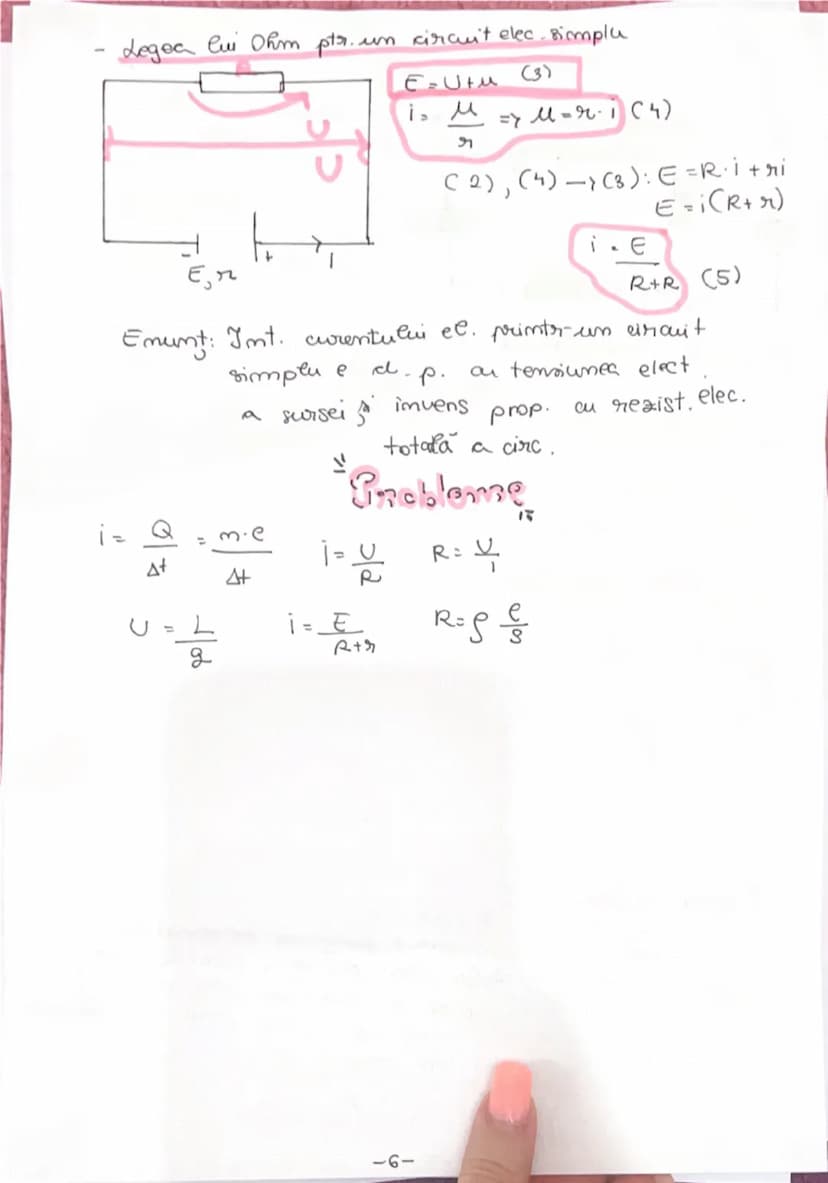 - Legea lui Ohm ptr. un circuit elec. simplu
E = U+u (3)
i = u/r => u = r·i (4)
U
U
(2), (4) → (3): E = R·i + ri
E = i(R+r)
- +
E, r I
i = E/R+R (5)
Enunț: Int. curentului el. printr-un circuit
simplu e d.p. cu tensiunea elect.
a sursei și invens prop. cu rezist. elec.
totală a circ.
Probleme
i = Q/Δt = n·e/Δt i = U/R R = U/I
U = L/q i = E/R+r R = ρ l/S
-6-